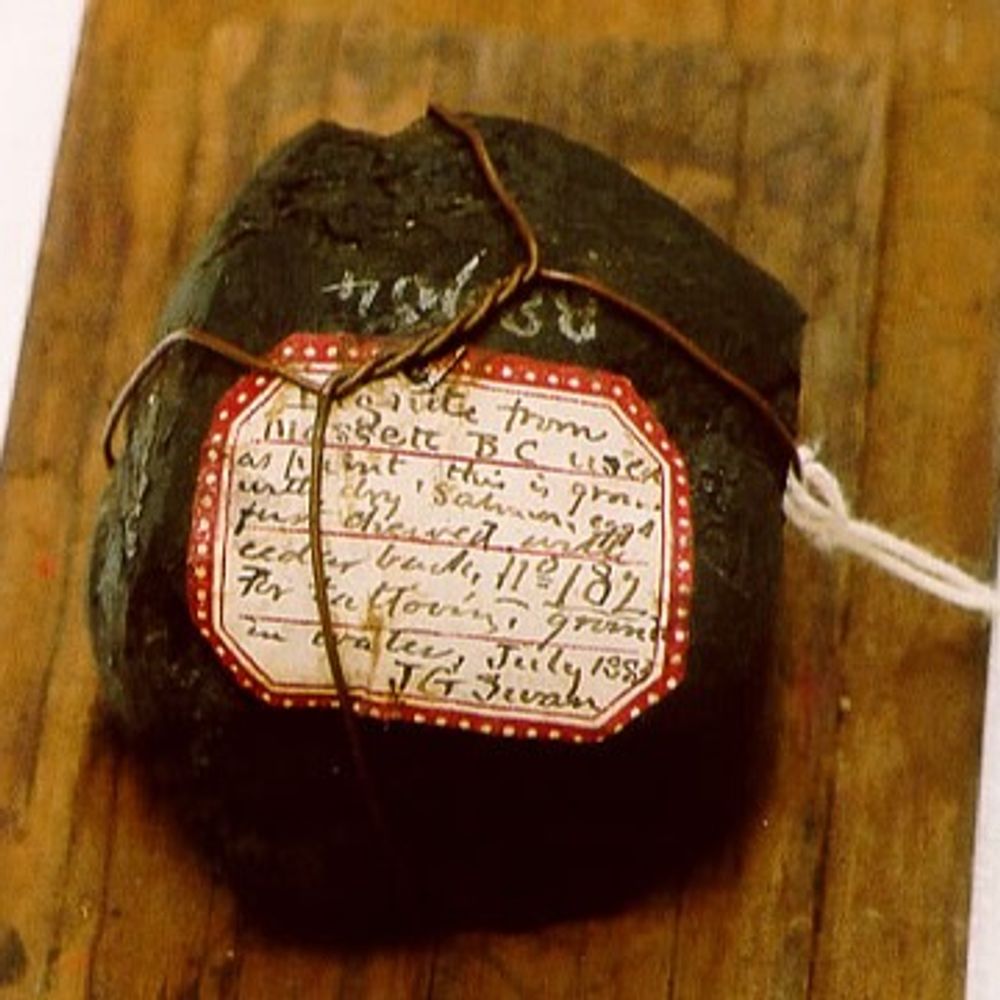 Lignite from
Massett B C used
as paint this is ground
with dry Salmon eggs
first chewed with
cedar bark, No 182
For tattooing, ground
in water, July 1883
J G Swan